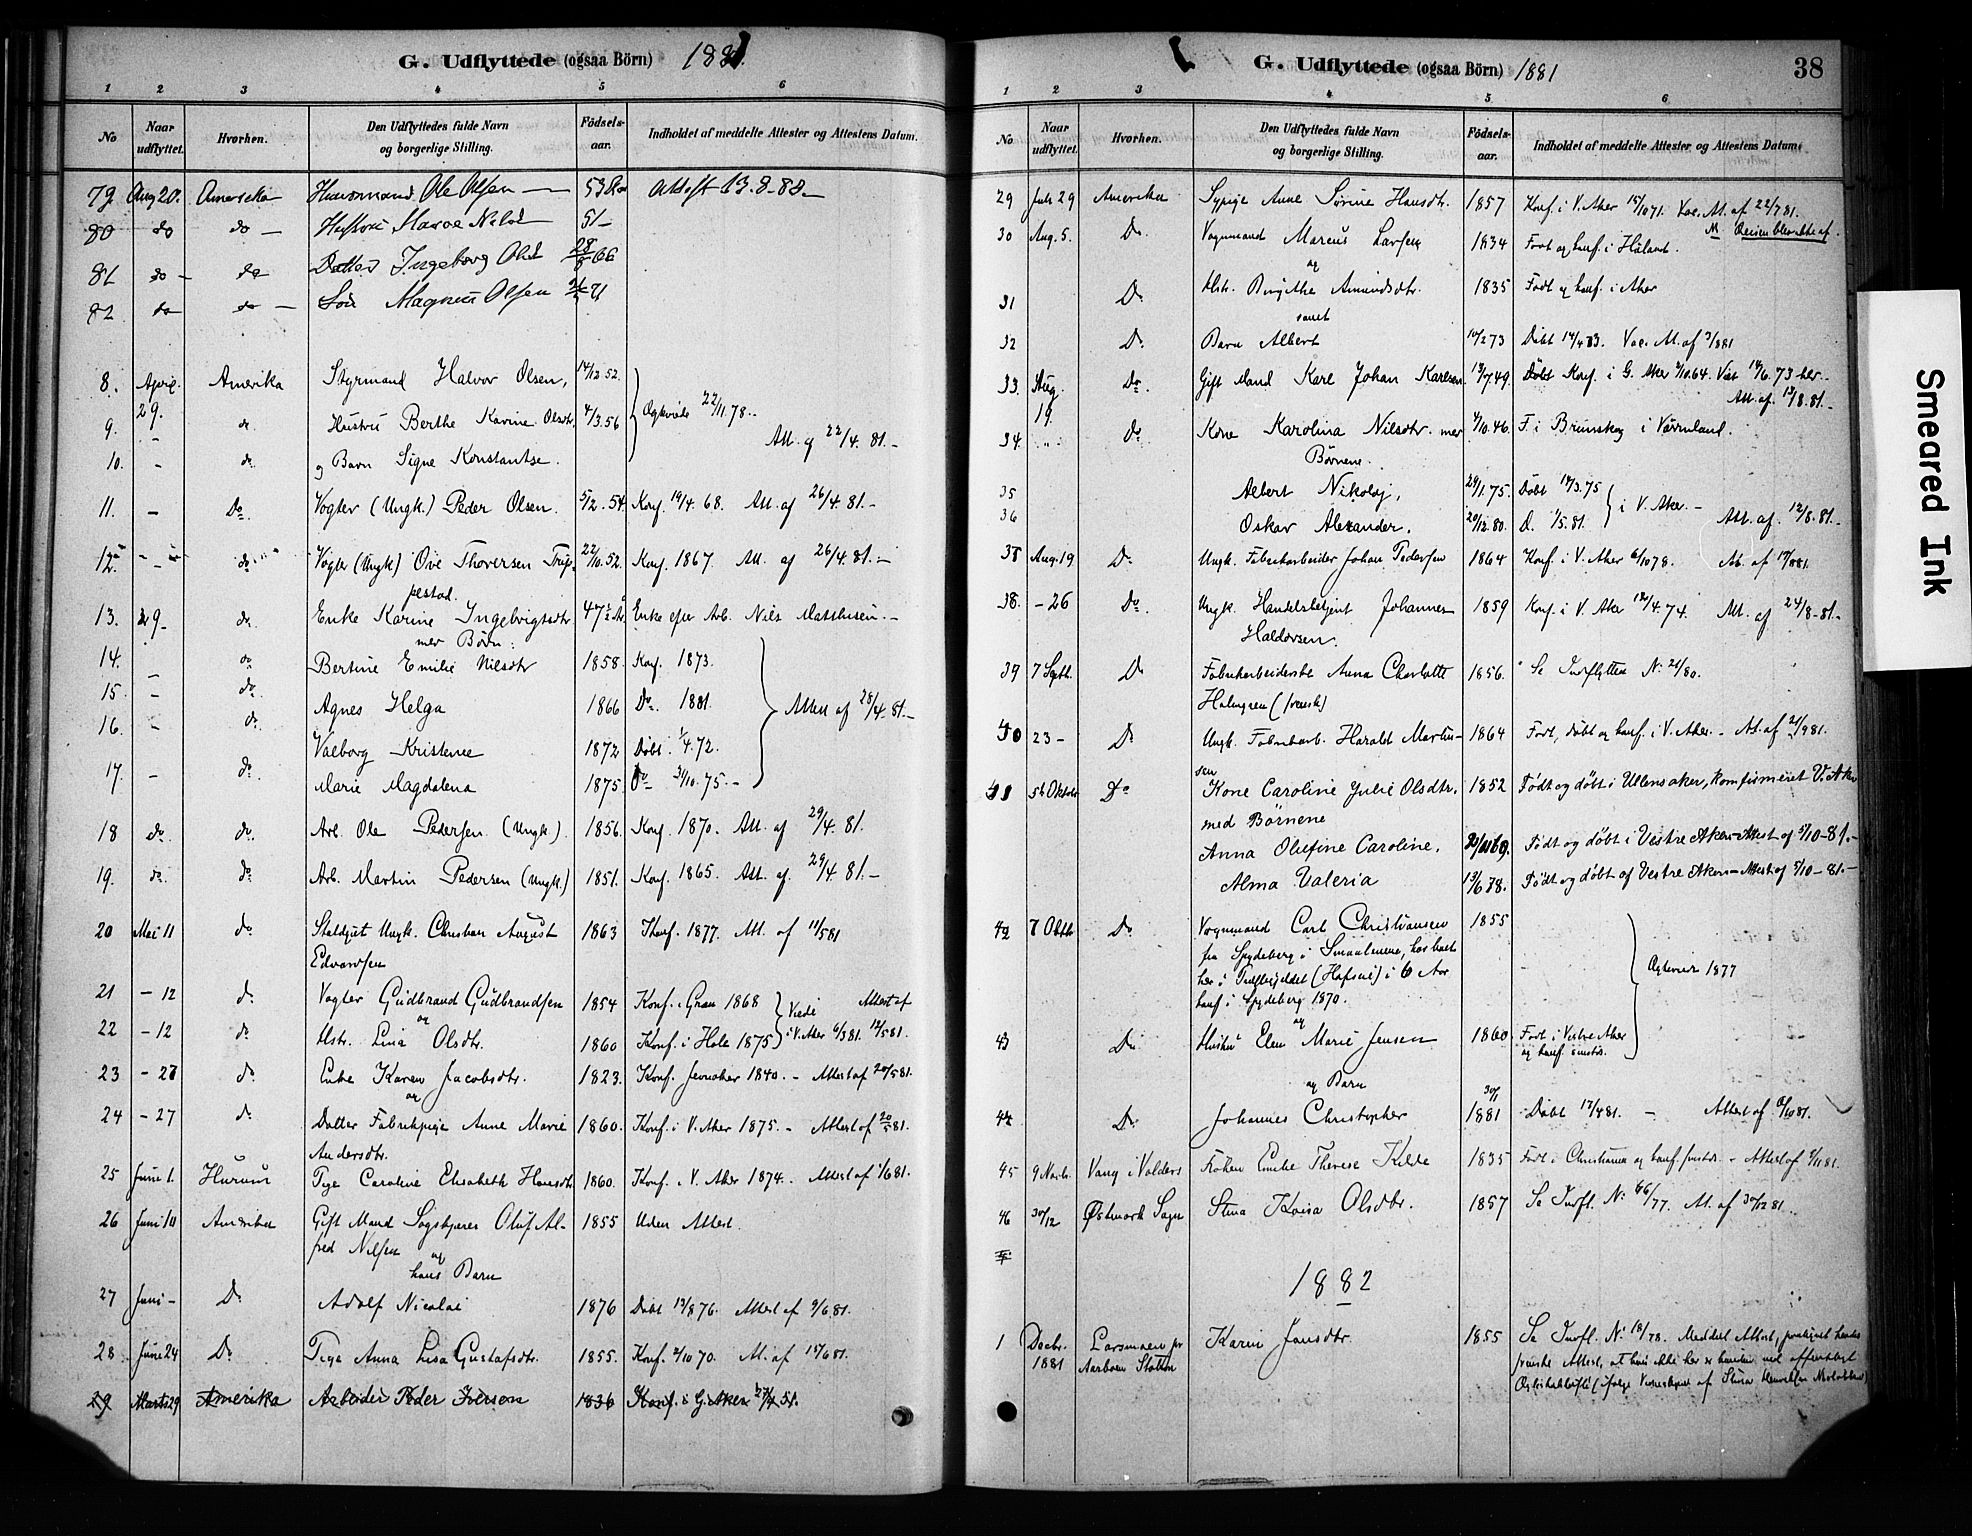 G. Udflyttede (ogsaa Börn) 1881.
1 2 3 4 5 6
No
Naar udflyttet.
Hvorhen.
Den Udflyttedes fulde Navn
og borgerlige Stilling.
Födsels-
aar.
Indholdet af meddelte Attester og Attestens Datum.
79 Aug 20. Amerika Ole Olsen 53
80 do do
81 do do Datter Ingeborg 28/8 66
82 do do Søn Magnus Olsen 71
8. April 29. Amerika Styrmand Halvor Olsen, 14/12 52.
9. - do Hustru Berthe Karine Olsdtr. 4/3.56 Egteviede 22/11.78.-
Att. af 22/4.81.-
10. - do og Barn Signe Konstantse.
11. - Do Vogter (Ungk.) Peder Olsen. 5/12.54. Konf. 19/4.68. Att. af 26/4.81.-
12. - do Vogter (Ungk) Ove Thoversen 22/10.52. Konf. 1867. Att. af 26/4.81.-
13. 29. do Enke Karine Ingebrigtsdtr 47 1/2 År Enke efter Arb. Nils Matthisen.-
med Børn:
14. - do Bertine Emilie Nilsdtr 1858. Konf. 1873.
15. - do Agnes Helga 1866 Do 1881
Attest af 28/4.81.-
16. - do Valborg Kristense 1872 Døbt 1/4.72.
17. - do Marie Magdalena 1875. Do 31/10.75.-
18 do. do. Arb. Ole Pedersen (Ungk.) 1856. Konf. 1870. Att. af 29/4.81.
19. do. do. Arb. Martin Pedersen (Ungk.) 1851. Konf. 1865. Att. af 29/4 81.-
20 Mai 11 do Ungk. Christian August 1863 Konf. 1877. Att. af 11/5 81
Edvardsen
21 - 12 do Vogter Gudbrand Gudbrandsen 1854 Konf. i Gran 1868 Viede Attest af
og
22 - 12 do Hstr. Lina Olsdtr. 1860 Konf. i Hole 1875 i V. Aker 6/3 81. 12/5 81.
23 - 27 do Enke Karen Jacobsdtr. 1823. Konf. Jevnaker 1840. - Attest af 20/5 81.
og
24 - 27 do Datter Fabrikpige Anne Marie 1860. Konf. i V. Aker 1875. - Attest af 20/5 81.
Andersdtr.
25 Juni 1. Hurum Pige Caroline Elisabeth Hansdtr 1860. Konf. i V. Aker 1874. Attest af 1/6 81.
26 Juni 10 Amerika Gift Mand Oluf Al- 1855 Uden Attest.
fred Nilsen og
hans Barn
27 Juni - Do Adolf Nicolai 1876 Døbt 13/8 76. Attest af 9/6 81.
28 Juni 24 Do Pige Anna Lisa Gustafsdtr. 1855. Konf. 2/10 70. At. af 15/6 81.
29 Marts 29 Amerika Arbeider Peder Iversen 1836 Konf. i G. Aker 51.
G. Udflyttede (ogsaa Börn) 1881
38
1 2 3 4 5 6
No
Naar udflyttet.
Hvorhen.
Den Udflyttedes fulde Navn
og borgerlige Stilling.
Födsels-
aar.
Indholdet af meddelte Attester og Attestens Datum.
29 Juli 29 Amerika Sypige Anne Sørine Hansdtr. 1857 Konf. i V. Aker 15/10 71. Vac. At. af 22/7 81.
30 Aug. 5. Do Vognmand Marcus Larsen 1834 Født og konf. i Høland.
og
31 Do Hstr. Birgithe Amundsdtr. 1835 Født og konf. i Aker
samt
32 Do Barn Albert 14/2 73 Døbt 14/4 73. Vac. At. af 3/8 81
33. Aug. 19 Do Gift Mand Karl Johan Karlsen 13/7.49. Konf. i G. Aker 2/10.64. Viet 14/6.73 her.-
Att. af. 12/8.81.-
34. " Do Kone Karolina Nilsdtr. med 4/10.46. F. i Brunskog i Värmland.
Børnene.
35 Albert Nikolaj, 29/1.75. Døbt 17/3.75
i V. Aker. - Att. af. 12/8.81.-
36 Oskar Alexander. 20/12.80. D. 1/5.81.
38 Aug. 19 Do Ungk. Fabrikarbeider Johan Pedersen 1864 Konf. i V. Aker 6/10 78. At. af 17/8 81.
38. - 26 Do Ungk. Handelsbetjent Johannes 1859 Konf. i V. Aker 12/4.74. Att. af 24/8-81.-
Haldorsen.
39 7 Septb. Do Fabrikarbeiderske Anna Charlotte 1856. Se Indflyttede No 21/80.
Holmgren (svensk)
40 23 - Do Ungk. Fabrikarb. Harald Martin- 1864 Født, døbt og konf. i V. Aker. - At. af 21/9 81.
sen
41 5te Oktober Do Kone Caroline Julie Olsdtr. 1852 Født og døbt i Ullensaker, konfirmeret V. Aker
med Børnene
Anna Olufine Caroline. Født og døbt i Vestre Aker. Attest af 5/10-81.-
Alma Valeria 13/6 78. Født og døbt af Vestre Aker. - Attest af 5/10-81.-
42 7 Oktb. Do Vognmand Carl Christiansen 1855
fra Spydeberg i Smaalenene, har boet
her i i 6 Aar
konf. i Spydeberg 1870.
Egteviet 1877
og
43 Do Hustru Elen Marie Jensen 1860 Født i Vestre Aker
og konf. smstds.
og Barn
44 Do Johannes Christopher 30/1 1881 Døbt 17/4 81. - Attest af 6/10 81.
45 9 Novbr. Vang i Valders Frøken Emilie Therese 1835 Født i Christiania og konf. smstds. - Attest af 9/11 81.
46 30/12 Østmark Sogn Stina Kaisa Olsdtr. 1857 Se Indfl. No 66/77. At. af 30/12 81.
1882
1 Decbr. 1881 Station Karin Jansdtr. 1855 Se Indfl. No 18/78. Meddelt Attest,
Smeared Ink